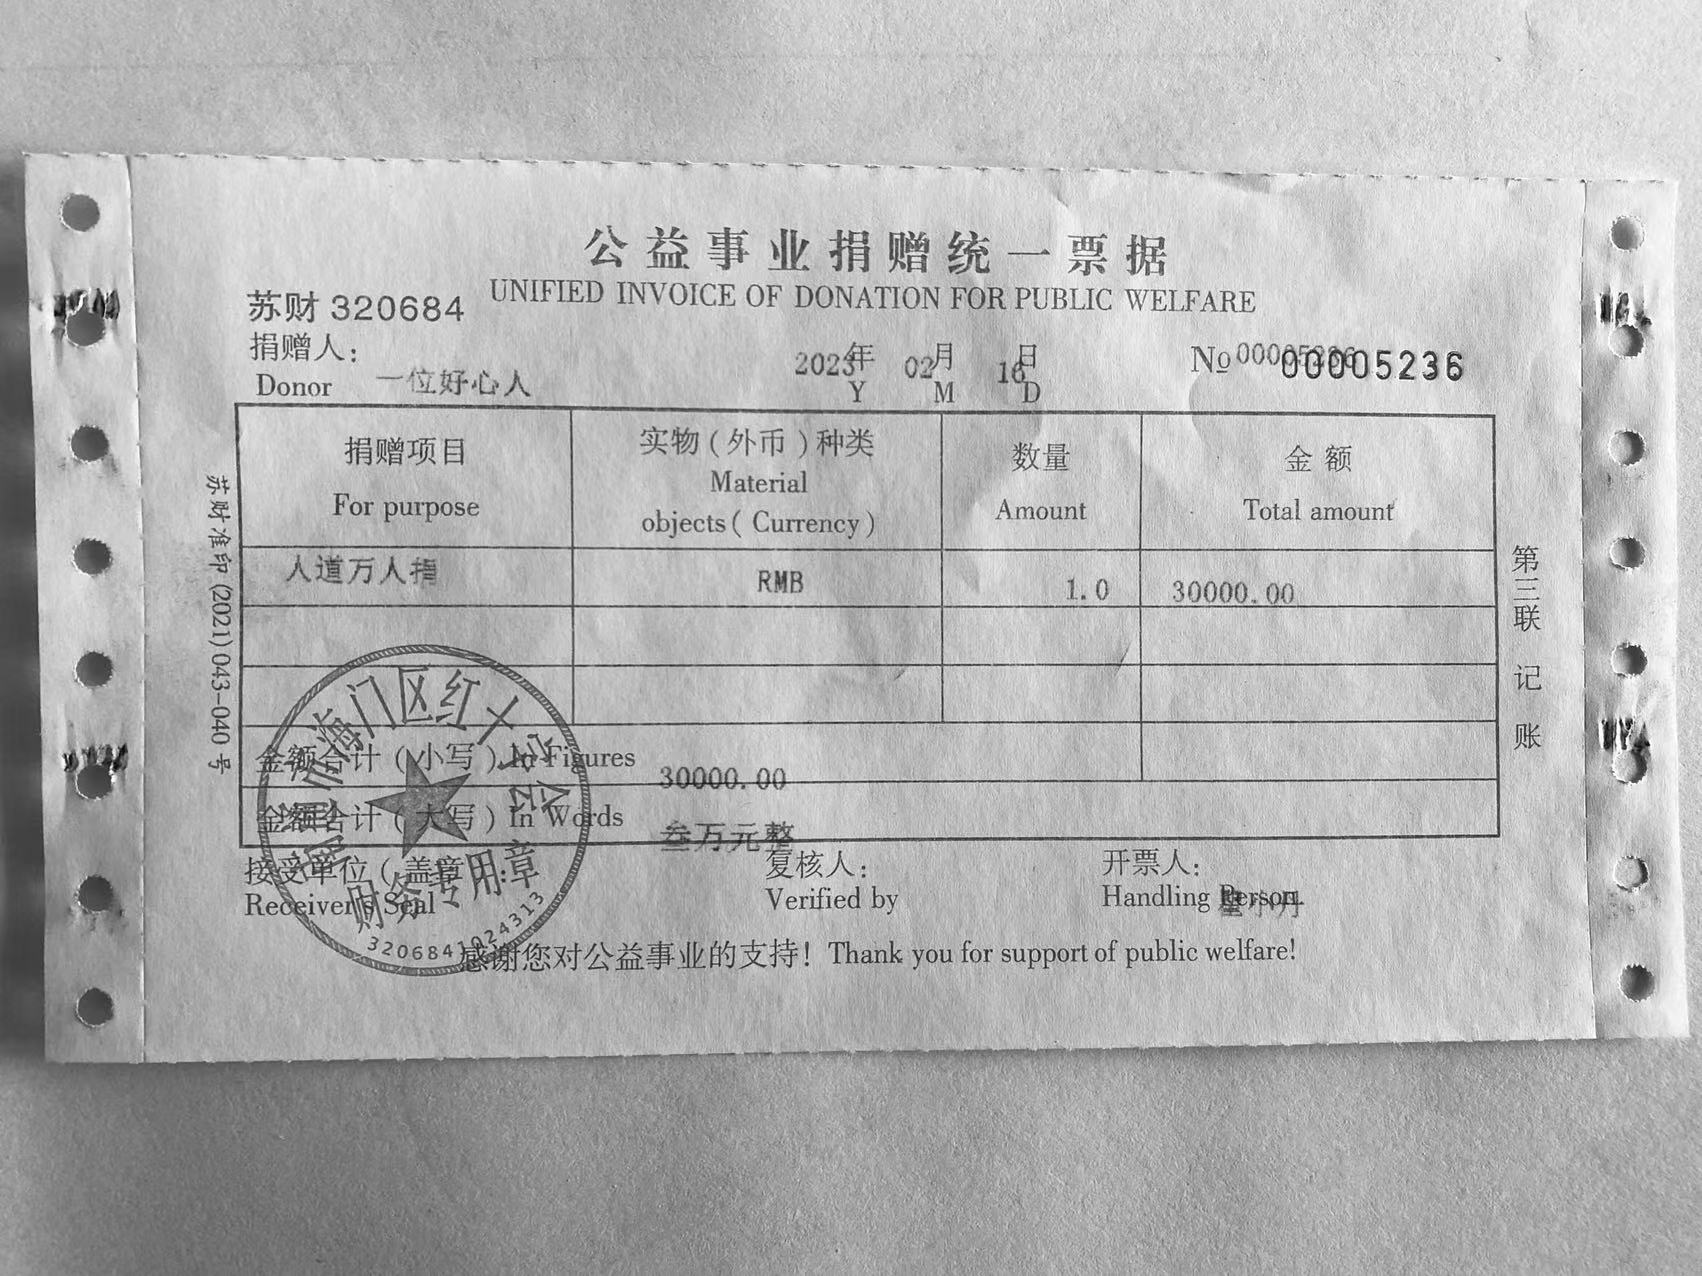 公益事业捐赠统一票据
UNIFIED INVOICE OF DONATION FOR PUBLIC WELFARE
苏财 320684
捐赠人：
Donor 一位好心人
2023年 02月 16日
Y M D
No 00005236 00005236
捐赠项目
For purpose
实物（外币）种类
Material
objects（Currency）
数量
Amount
金额
Total amount
人道万人捐 RMB 1.0 30000.00
金额合计（小写）In Figures 30000.00
金额合计（大写）In Words 叁万元整
接受单位（盖章）：
Receiver's Seal
复核人：
Verified by
开票人：
Handling Person
感谢您对公益事业的支持！Thank you for support of public welfare!
苏财准印 (2021) 043-040 号
第三联 记账
海门区红十字会
财务专用章
3206841024313